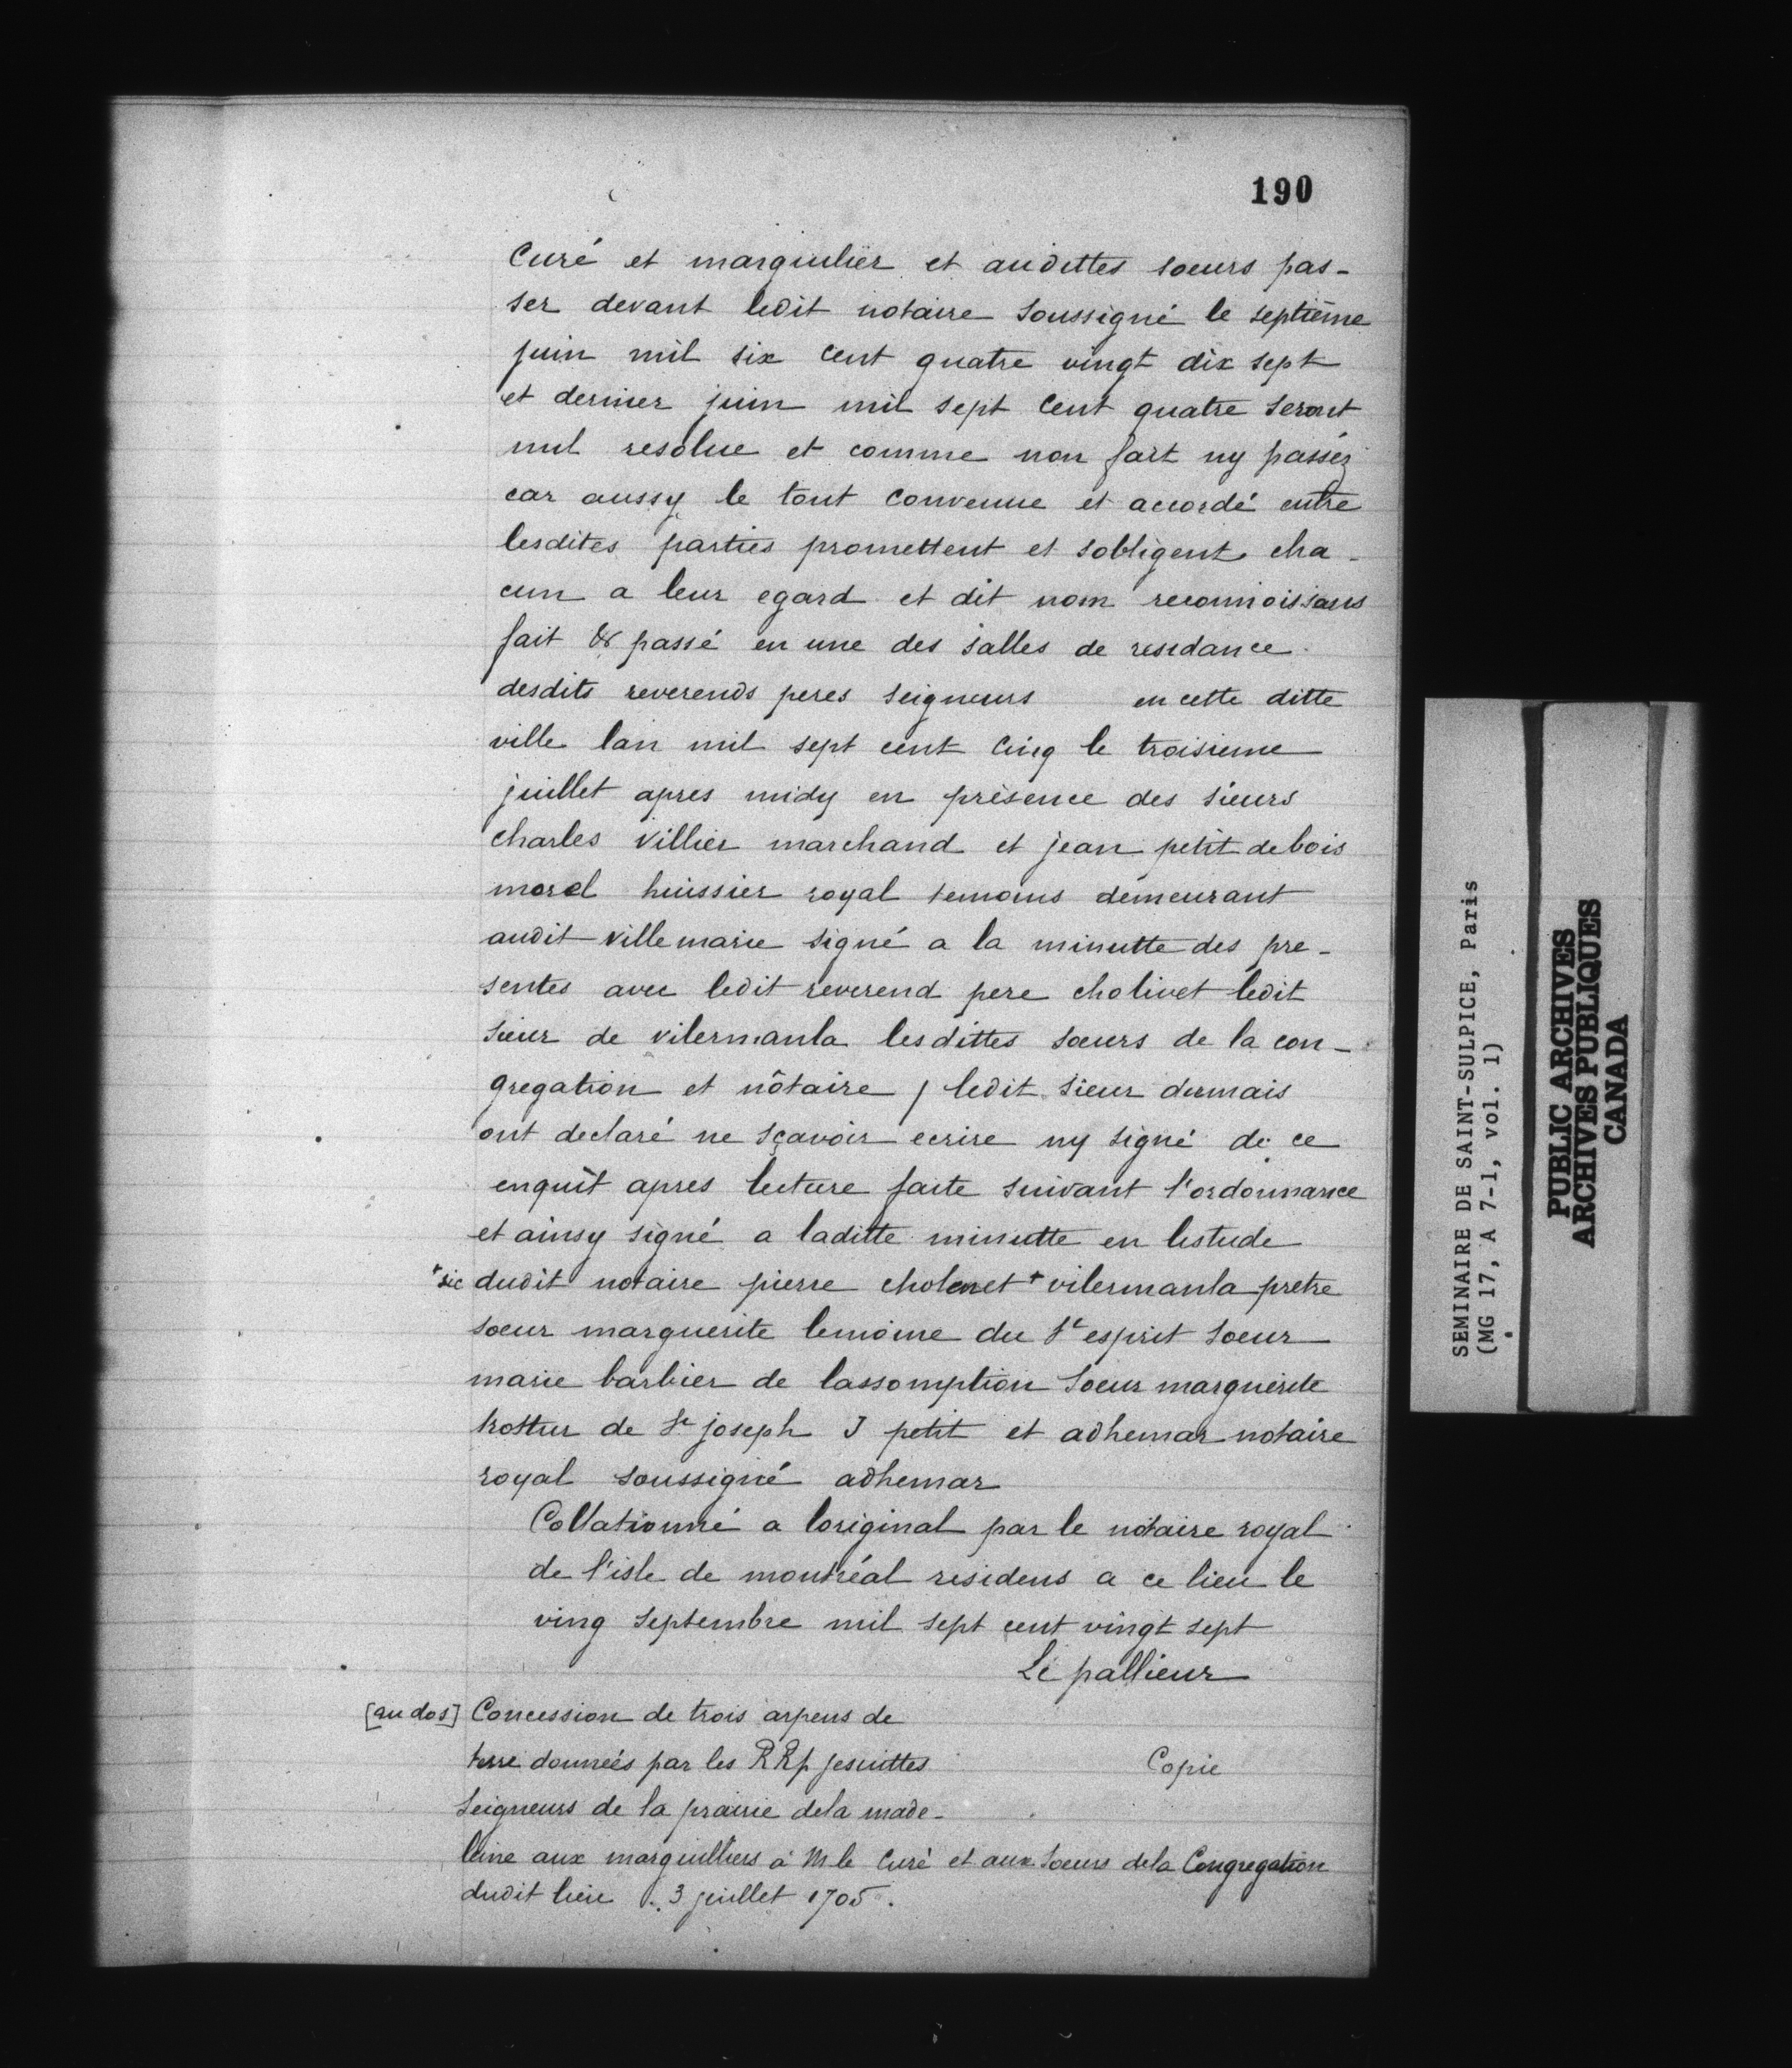 190
Curé et margiulier et audittes soeurs pas-
ser devant ledit notaire soussigné le septième
juin mil six cent quatre vingt dix sept
et dernier juin mil sept cent quatre seront
nul resolue et comme non fait ny passéz
car aussy le tout convenue et accordé entre
lesdites parties promettent et sobligent cha-
cun a leur egard et dit nom reconnoissans
fait & passé en une des salles de residance
desdits reverends peres seigneurs en cette ditte
ville lan mil sept cent cinq le troisieme
juillet apres midy en présence des sieurs
charles villier marchand et jean petit de bois
morel huissier royal temoins demeurant
audit villemarie signé a la minutte des pre-
sentes avec ledit reverend pere cholivet ledit
sieur de vilermaula lesdittes soeurs de la con-
gregation et nôtaire / ledit sieur dumais
ont declaré ne sçavoir ecrire ny signé de ce
enquit apres lecture faite suivant l'ordonnance
et ainsy signé a laditte minutte en lestude
+sic dudit notaire pierre cholenet + vilermaula pretre
soeur marguerite lemoine du St esprit soeur
marie barbier de lassomption soeur marguerite
trottier de St joseph J petit et adhemar notaire
royal soussigné adhemar
Collationné a loriginal par le notaire royal
de l'isle de montréal residens a ce lieu le
ving septembre mil sept cent vingt sept
Le pallieur
[au dos] Concession de trois arpens de
terre donneés par les RRp jesuittes
Copie
Seigneurs de la prairie dela made-
leine aux marguilliers à M le Curé et aux Soeurs dela Congregation
dudit lieu . 3 juillet 1705.
SEMINAIRE DE SAINT-SULPICE, Paris
(MG 17, A 7-1, vol. 1)
PUBLIC ARCHIVES
ARCHIVES PUBLIQUES
CANADA